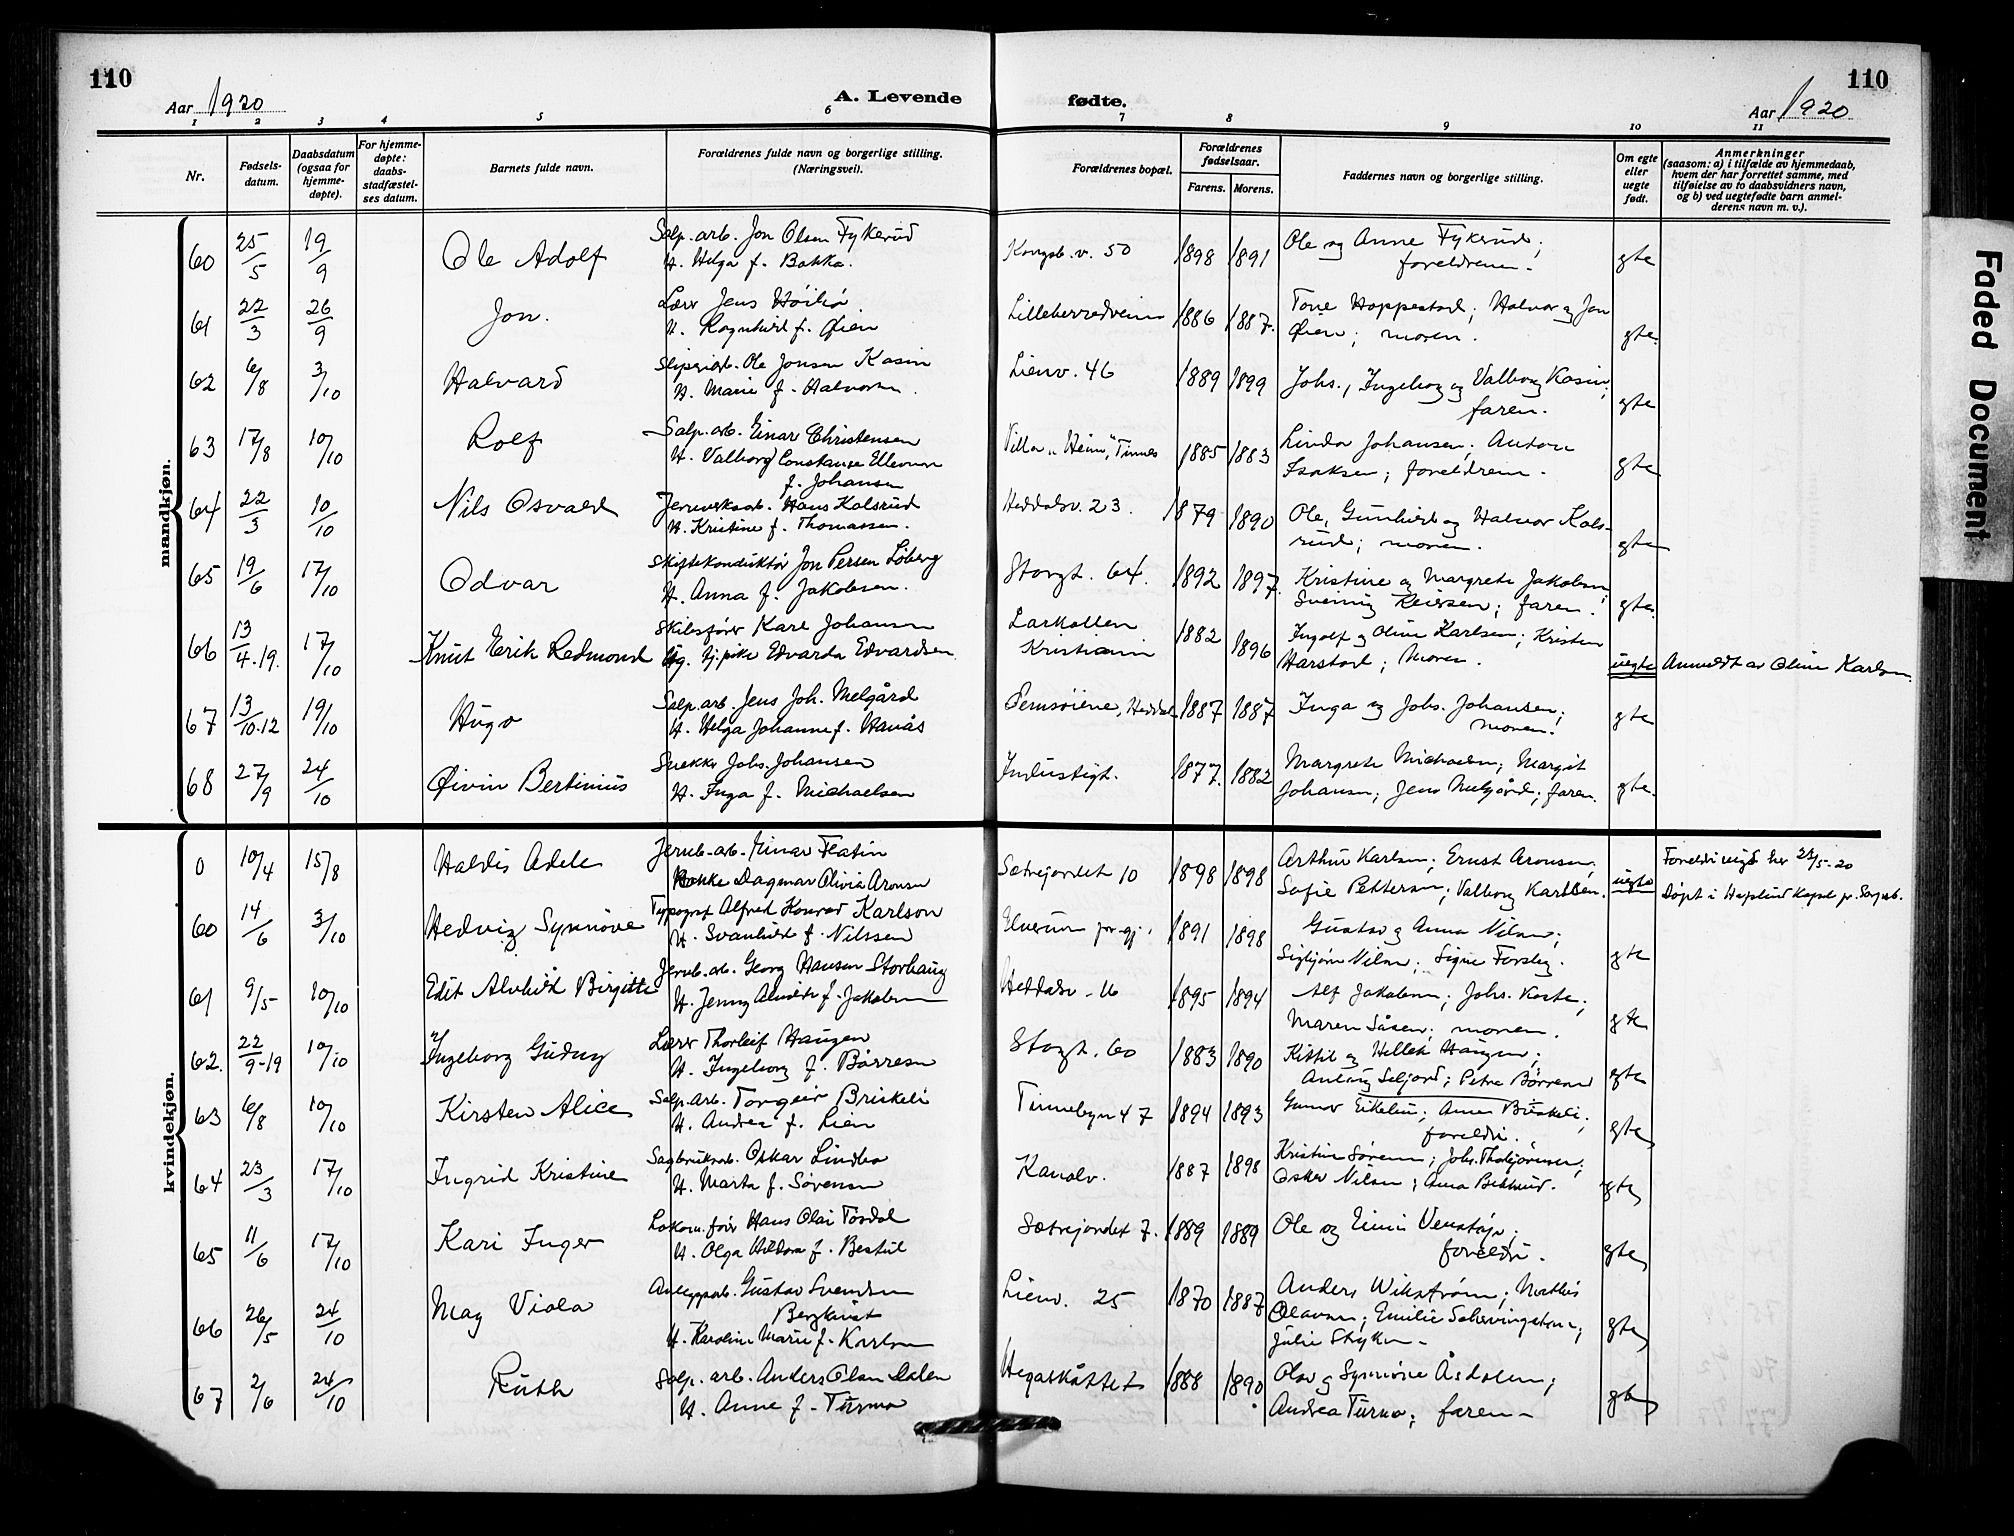 110
110
Aar 1920
A. Levende
fødte.
Aar 1920
1 2 3 4 5 6 7 8 9 10 11
Nr.
Fødsels-
datum.
Daabsdatum
(ogsaa for
hjemme-
døpte).
For hjemme-
døpte:
daabs-
stadfæstel-
ses datum.
Barnets fulde navn.
Forældrenes fulde navn og borgerlige stilling.
(Næringsvei).
Forældrenes bopæl.
Forældrenes
fødselsaar.
Farens. Morens.
Faddernes navn og borgerlige stilling.
Om egte
eller
uegte
født.
Anmerkninger
(saasom: a) i tilfælde av hjemmedaab,
hvem der har forrettet samme, med
tilføielse av to daabsvidners navn,
og b) ved uegtefødte barn anmel-
derens navn m. v.).
mandkjøn.
60 25/5 19/9 Ole Adolf Salp. arb. Jon Olsen Fykerud Kongsb. v. 50 1898 1891 Ole og Anne Fykerud; gte
H. Helga f. Bakka. foreldrene.
61 22/3 26/9 Jon. Lærer Jens Høibø Lilleherredveien 1886 1887. Tone Hoppestad; Halvor og Jon gte.
H. Ragnhild f. Øien Øien; moren.
62 6/8 3/10 Halvard Sliperiarb. Ole Jonsen Kasin Lienv. 46 1889 1899 Johs., Ingeborg og Valborg Kasin; gte
H. Marie f. Halvorsen. faren.
63 17/8 10/10 Rolf Salp. arb. Einar Christensen Villa "Heim", Tinnes 1885 1883 Linda Johansen; Anton gte
H. Valborg Constanse Ellevine Isaksen; foreldrene.
f. Johansen
64 22/3 10/10 Nils Osvald Jernverksarb. Hans Kolsrud Heddalsv. 23. 1879 1890 Ole, Gunhild og Halvor Kols- gte
H. Kristine f. Thomassen. rud; moren.
65 19/6 17/10 Odvar Skiftekonduktør Jon Persen Løberg Storgt. 64. 1892 1897. Kristine og Margrete Jakobsen; gte.
H. Anna f. Jakobsen. Sveinug Reiersen; faren.
66 13/4.19. 17/10 Knut Erik Redmond Skibsfører Karl Johansen Larkollen 1882 1896 Ingolf og Oline Karlsen; Kristen uegte Anmeldt av Oline Karlsen.
Ug. tj.pike Edvarda Edvardsen Kristiania Harstad; Moren.
67 13/10.12 19/10 Hugo Salp. arb. Jens Joh. Melgård Heddal 1887 1887 Inga og Johs. Johansen; gte
H. Helga Johanne f. Hanås moren.
68 27/9 24/10 Øivin Bertinius Snekker Johs. Johansen Industrigt. 1877. 1882 Margrete Michaelsen; Margit gte.
H. Inga f. Michaelsen Johansen; Jens Melgård; faren.
kvindekjøn.
0 10/4 15/8 Haldis Adele Jernb. arb. Einar Flatin Sætrejordet 10 1898 1898 Arthur Karlsen; Ernst Aronsen; uegte Foreldr. viegt her 22/5-20
Dagmar Olivia Aronsen Sofie Pettersen; Valborg Karlsen. Døpt i Hafslund Kapel pr. Sarpsb.
60 14/6 3/10 Hedvig Synnøve Typograf Alfred Konrad Karlson Elverum pr. gj. 1891 1898 Gustav og Anna Nilsen; gte
H. Svanhild f. Nilssen Sigbjørn Nilsen; Signe Forsberg.
61 9/5 10/10 Edit Alvhild Birgitte Jernb. arb. Georg Hansen Storhaug Heddalsv. 16 1895 1894 Alf Jakobsen; Johs. Kaste; gte
H. Jenny Alvilde f. Jakobsen Maren Såsen; moren.
62. 22/9-19 10/10 Ingeborg Gudny Lærer Thorleif Haugen Storgt. 60 1883 1890 Kittil og Hellek Haugen; gte
H. Ingeborg f. Børresen Seljord; Petra Børresen
63 6/8 10/10 Kirsten Alice Salp. arb. Torgeir Briskeli Tinnebyen 47 1894 1893 Gunvor Eikelien; Anna Briskeli; gte
H. Andrea f. Lien foreldr.
64 23/3 17/10 Ingrid Kristine Sagbruksarb. Oskar Lindbo Kanalv. 1887 1898 Kristine Sørensen; Johs. Thobjørnsen; gte
H. Marta f. Sørensen Oskar Nilsen; Anna Bekkerud.
65 11/6 17/10 Kari Inger Lokom. fører Hans Olai Tosdal Sætrejordet 7. 1889 1889 Ole og Venstøp; gte
H. Olga Haldora f. Bestul foreldr.
66 26/5 24/10 May Viola Anleggsarb. Gustav Svendsen Lienv. 25 1870 1887 Anders Wikstrøm; Mathis gte
Bergkvist Olavsen; Emilie
H. Karoline Marie f. Karlsen Julie Stryken.
67 2/6 24/10 Ruth Salp. arb. Anders Olsen Dalen Hegnaslåttet 1888 1890 Olav og Synnøve Åsdalen; gte
H. Anne f. Turmo Andrea Turmo; faren.
Faded Document